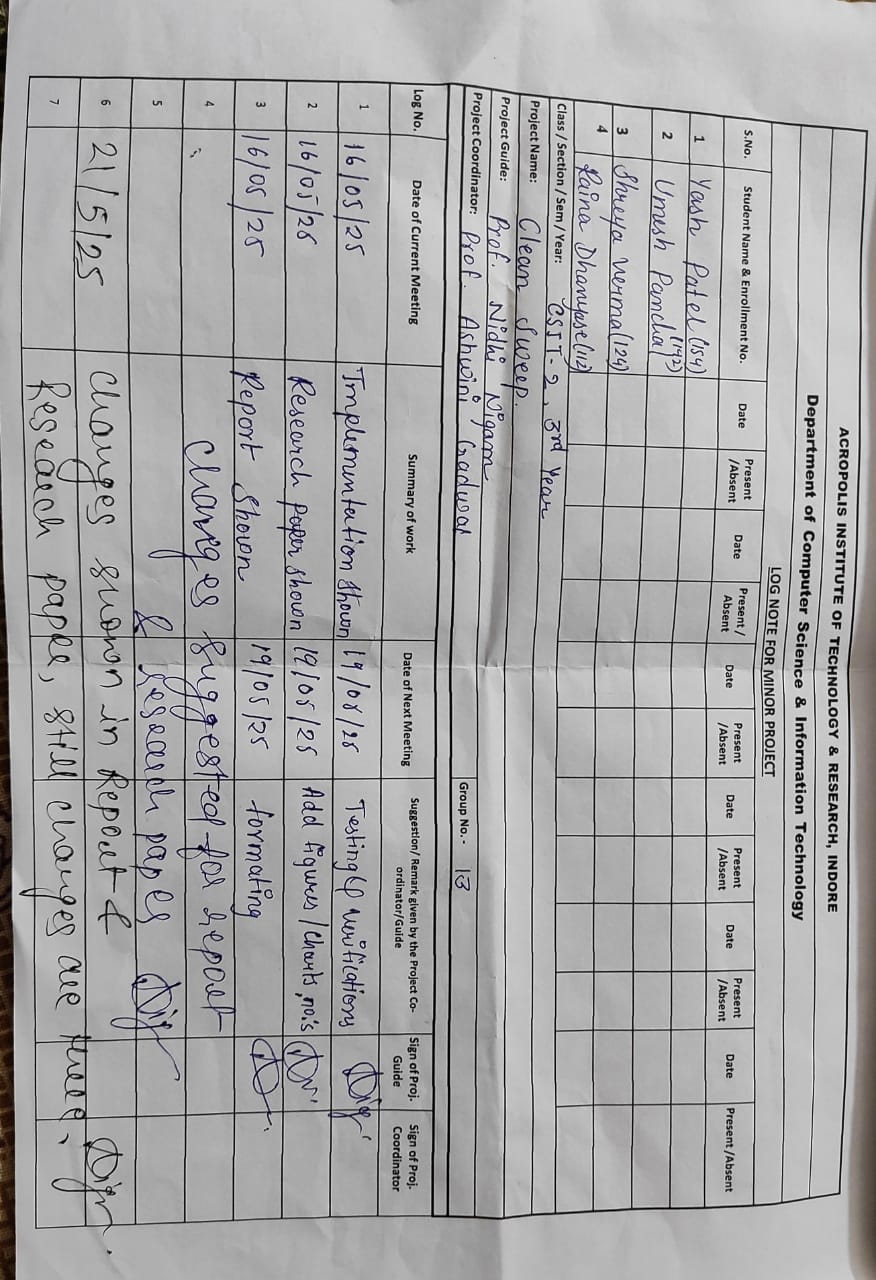 ACROPOLIS INSTITUTE OF TECHNOLOGY & RESEARCH, INDORE
Department of Computer Science & Information Technology
LOG NOTE FOR MINOR PROJECT
S.No. Student Name & Enrollment No. Date Present /Absent Date Present / Absent Date Present /Absent Date Present /Absent Date Present /Absent Date Present /Absent
1 Yash Patel (154)
2 Umesh Panchal (142)
3 Shreya Verma (129)
4 Raina Dhanyase (112)
Class / Section / Sem / Year: CSIT-2, 3rd Year
Project Name: Clean Sweep.
Project Guide: Prof. Nidhi Nigam
Project Coordinator: Prof. Ashwini Gadwal Group No.- 13
Log No. Date of Current Meeting Summary of work Date of Next Meeting Suggestion/ Remark given by the Project Co-ordinator/Guide Sign of Proj. Guide Sign of Proj. Coordinator
1 16/05/25 Implementation shown 19/05/25 Testing & verifications
2 16/05/25 Research paper shown 19/05/25 Add figures/charts, no's
3 16/05/25 Report shown 19/05/25 formating
4 changes suggested for report
5 & Research paper
6 21/5/25 changes shown in Report &
7 Research paper, still changes are there.